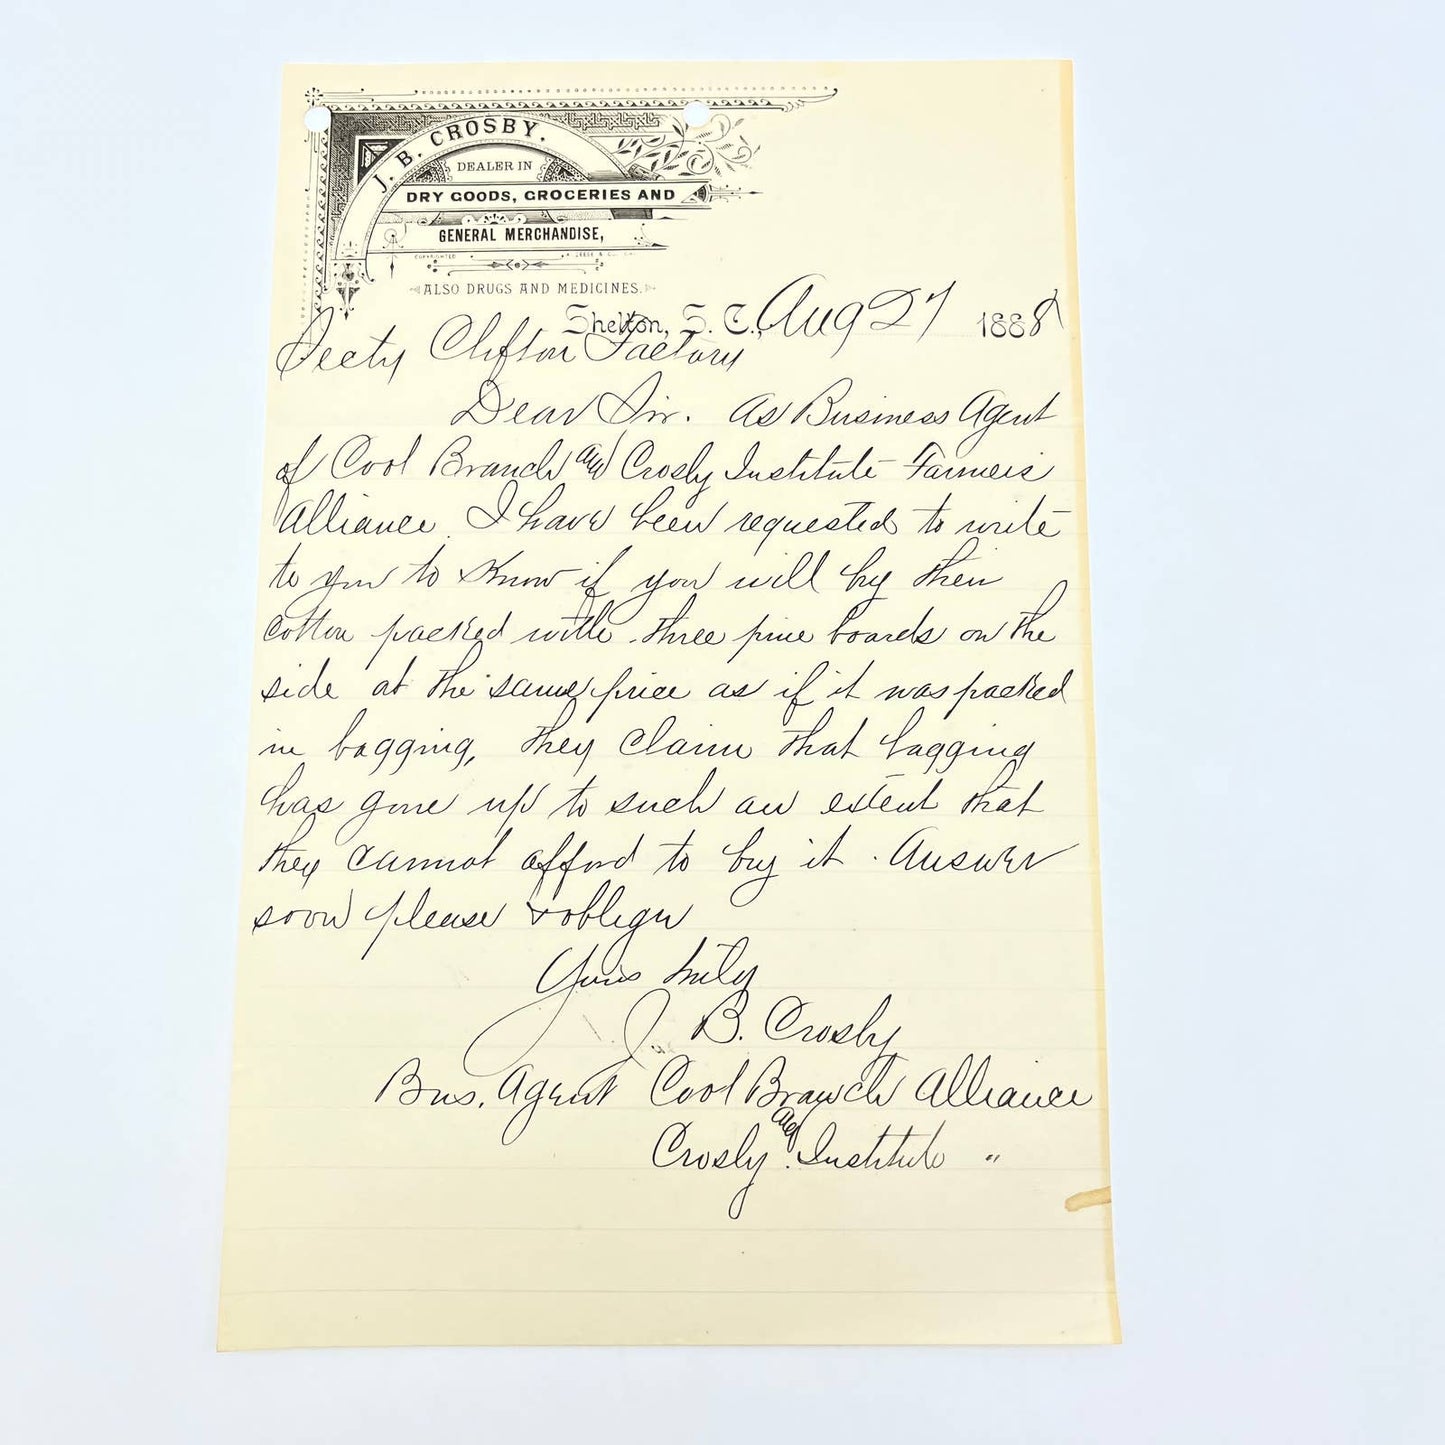 J. B. CROSBY.
DEALER IN
DRY GOODS, GROCERIES AND
GENERAL MERCHANDISE,
COPYRIGHTED
ALSO DRUGS AND MEDICINES.
Shelton, S. C., Aug 27 1888
Secty Clifton Factory
Dear Sir. As Business Agent
of Cool Branch and Crosby Institute Farmers
Alliance. I have been requested to write
to you to know if you will by their
cotton packed with three pine boards on the
side at the same price as if it was packed
in bagging, they claim that bagging
has gone up to such an extent that
they cannot afford to buy it. Answer
soon please & oblige
Yours truly
J. B. Crosby
Bus. Agent Cool Branch Alliance
and
Crosby Institute "